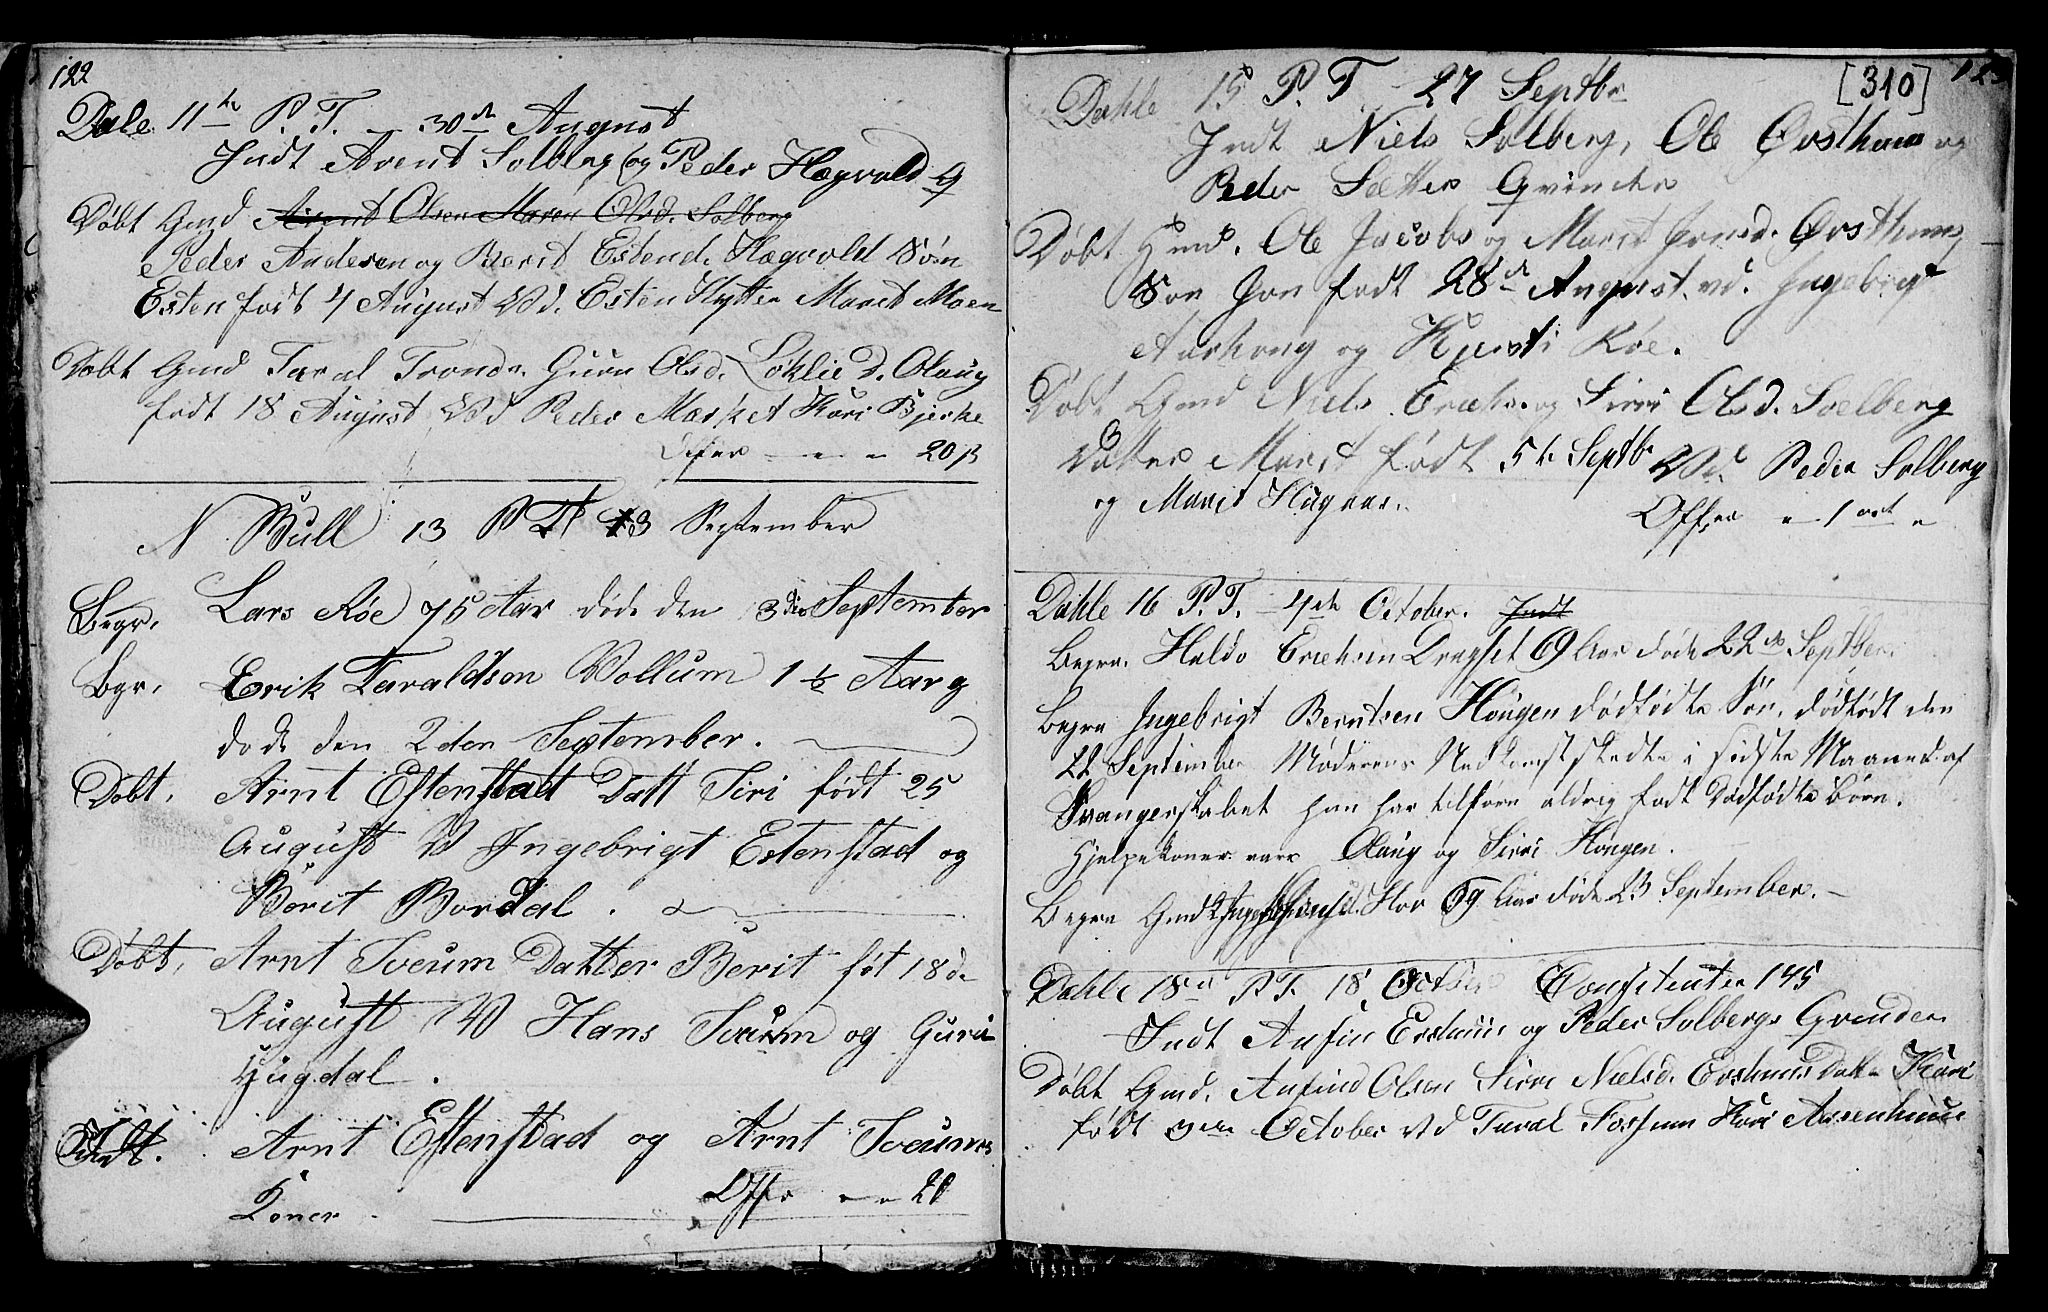 122
Dale 11te P. T. — 30te August
Indt Arent Solberg og Peder Hægvold
Døbt Gmd Arent Olsen Maren Olsd. Solberg
Peder Andersen og Berit Estend. Hægvold Søn
Esten født 4 August Vd. Esten Hytter Marit Moen
Døbt Gmd Taral Tronds. Guru Olsd. Løklie D. Olaug
født 18 August Vd Peder Market Kari Bjerke
Ofer — — — 20 β
N Bull 13 P T 13 September
Begr. Lars Røe 75 Aar døde den 3die September
Bgr. Erik Taraldsen Vollum 1 ½ Aar g
døde den 2den September.
Døbt, Arnt Estenstad Datt Siri født 25
August V Ingebrigt Estenstad og
Berit Bordal.
Døbt, Arnt Tveum Datter Berit føt 18de
August W Hans Tveum og Guru
Hugdal.
Indt. Arnt Estenstad og Arnt Tveums
Koner.
Offer — — 20
[310] 123
Dahle 15 P. T — 27 Septbr
Indt Niels Solberg, Ole Øvsthuus og
Peder Sætter Qvinder
Døbt Gmd. Ole Jacobs og Marit Jonsd. Øvsthuus
Søn Jon født 28de August. vd. Ingebrigt
Aashoug og Kjersti Røe.
Døbt Gmd Niels Eriks. og Sirri Olsd. Solberg
Datter Marit født 5te Septbr Vd. Peder Solberg
og Marit Hugaas.
Offer — 1 ort —
Dahle 16 P. T. — 4de October. Indt
Begra. Haldo Eriksen Dragset 69 Aar døde 22de Septber.
Begra Ingebrigt Berntsen Hougen dødfødte Søn, dødfødt den
22 September Moderens Nedkomst skedte i sidste Maaned af
Svangerskabet hun har tilforn aldrig født dødfødte Børn.
Hjelpekoner vare Olaug og Sirri Hougen.
Begra Gmdk Hov 69 Aar døde 23 September. —
Dahle 18de P T. 18 Octbr Confitenter 145
Indt Anfin Ershuus og Peder Solbergs Qvinder
Døbt Gmd. Anfind Olsen Sirri Nielsd. Ershuus Datter Kari
født October Vd Taral Fossum Kari Aasenhuus